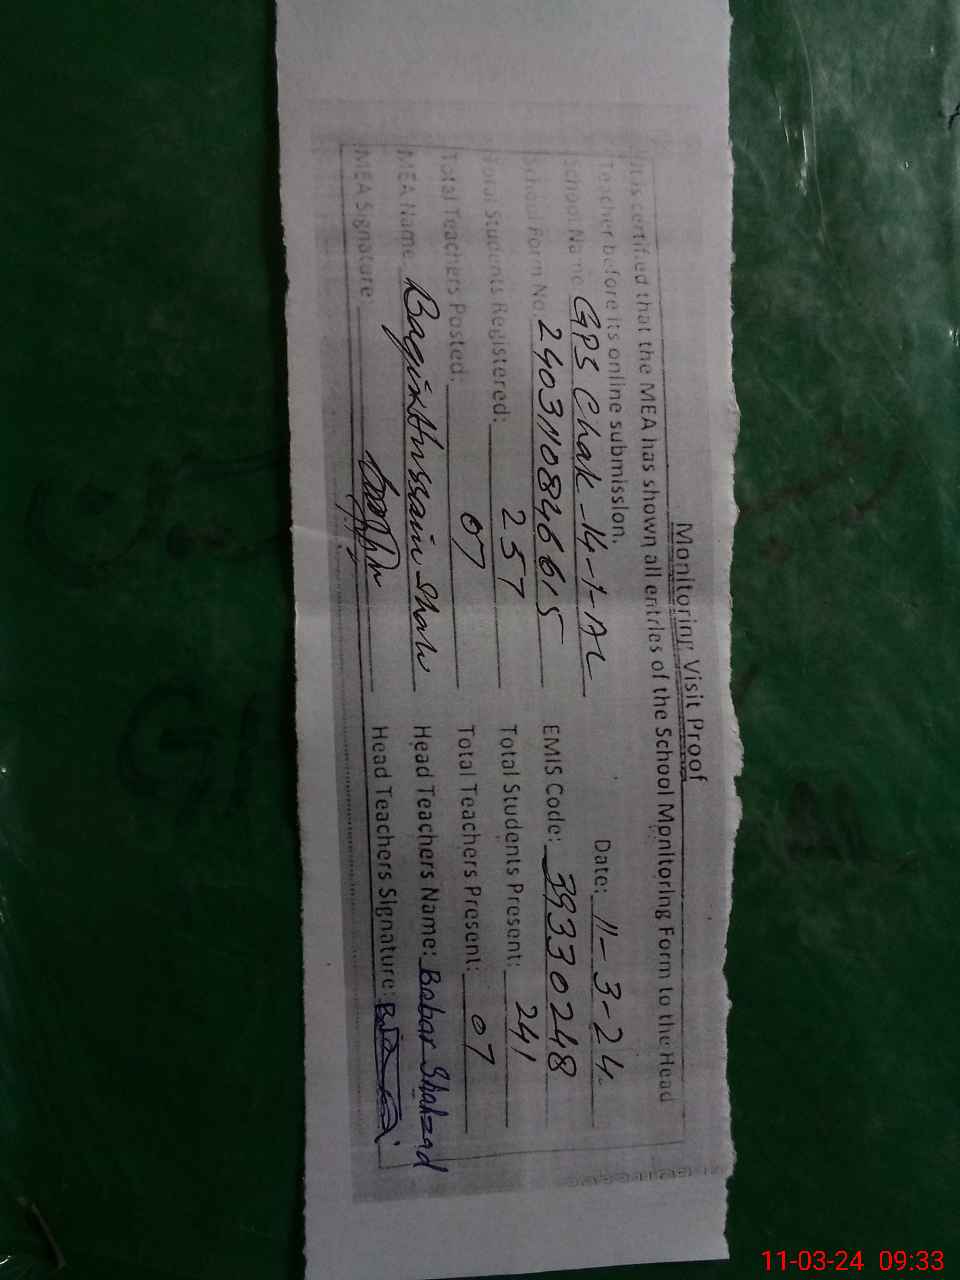 Monitoring Visit Proof
It is certified that the MEA has shown all entries of the School Monitoring Form to the Head
Teacher before its online submission.
Date: 11-3-24
School Name: GPS Chak-14-1-AL
School Form No. 2403110846615 EMIS Code: 39330248
Total Students Registered: 257 Total Students Present: 241
Total Teachers Posted: 07 Total Teachers Present: 07
MEA Name Baqir Hussain Shah Head Teachers Name: Babar Shahzad
MEA Signature: Head Teachers Signature:
11-03-24 09:33